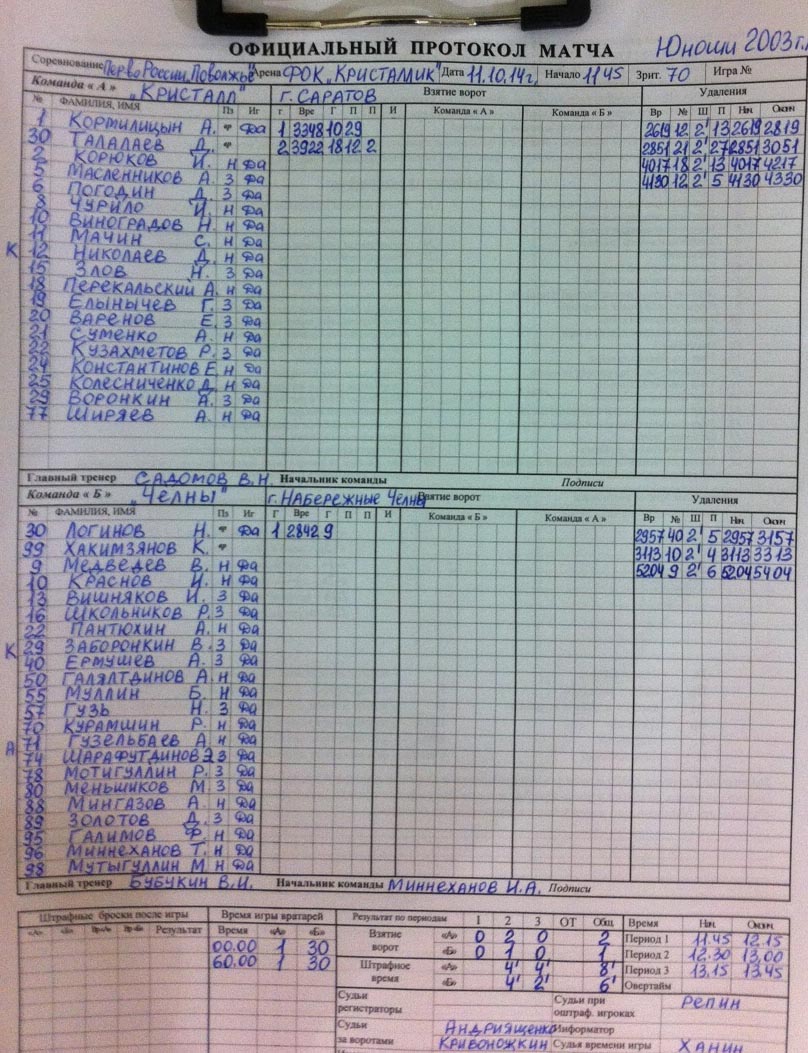 ОФИЦИАЛЬНЫЙ ПРОТОКОЛ МАТЧА Юноши 2003 г.р.
Соревнование Перво России, Поволжье Арена ФОК „Кристаллик" Дата 11.10.14г, Начало 11 45 Зрит. 70 Игра №
Команда « А » „Кристалл" г. Саратов Взятие ворот Удаления
№ ФАМИЛИЯ, ИМЯ Пз Иг Г Вре Г П П И Команда « А » Команда « Б » Вр № Ш П Нач Оконч
1 Кормилицын А. Да 1 3348 10 29 2619 12 2' 13 2619 2819
30 Талалаев Д. 2 3922 18 12 2 2851 21 2' 27 2851 3051
2 Корюков И. Н Да 4017 18 2' 13 4017 4217
5 Масленников А. З Да 4130 12 2' 5 4130 4330
6 Погодин Д. З Да
8 Чурило И. Н Да
10 Виноградов Н. Н Да
11 Мачин С. Н Да
К 12 Николаев Д. Н Да
15 Злов Н. З Да
18 Перекальский А. Н Да
19 Елынычев Г. З Да
20 Варенов Е. З Да
21 Суменко А. Н Да
22 Кузахметов Р. З Да
24 Константинов Е Н Да
25 Колесниченко Д. Н Да
29 Воронкин А. З Да
77 Ширяев А. Н Да
Главный тренер Садомов В.Н. Начальник команды Подписи
Команда « Б » „Челны" г. Набережные Челны Взятие ворот Удаления
№ ФАМИЛИЯ, ИМЯ Пз Иг Г Вре Г П П И Команда « Б » Команда « А » Вр № Ш П Нач Оконч
30 Логинов Н. Да 1 2842 9 2957 40 2' 5 2957 3157
99 Хакимзянов К. 3113 10 2' 4 3113 3313
9 Медведев В. Н Да 5204 9 2' 6 5204 5404
10 Краснов И. Н Да
13 Вишняков И. З Да
16 Школьников Р. З Да
22 Пантюхин А. Н Да
К 29 Заборонкин В. З Да
40 Ермушев А. З Да
50 Галялтдинов А. Н Да
55 Муллин Б. Н Да
57 Гузь Н. З Да
70 Курамшин Р. Н Да
А 71 Гузельбаев А. Н Да
74 Шарафутдинов Э З Да
78 Мотигуллин Р. З Да
80 Меньшиков М. З Да
88 Мингазов А. Н Да
89 Золотов Д. З Да
95 Галимов Ф. Н Да
96 Миннеханов Т. Н Да
98 Мутыгуллин М. Н Да
Главный тренер Бубукин В.И. Начальник команды Миннеханов И.А. Подписи
Штрафные броски после игры Время игры вратарей Результат по периодам 1 2 3 ОТ Общ Время Нач. Оконч.
«А» «Б» Вр«А» Вр«Б» Результат Время «А» «Б» Взятие ворот «А» 0 2 0 2 Период 1 11.45 12.15
00.00 1 30 «Б» 0 1 0 1 Период 2 12.30 13.00
60.00 1 30 Штрафное время «А» 4' 4' 8' Период 3 13.15 13.45
«Б» 4' 2' 6' Овертайм
Судьи регистраторы Судьи при оштраф. игроках Репин
Судьи за воротами Андриященко Информатор
Кривоножкин Судья времени игры Ханин